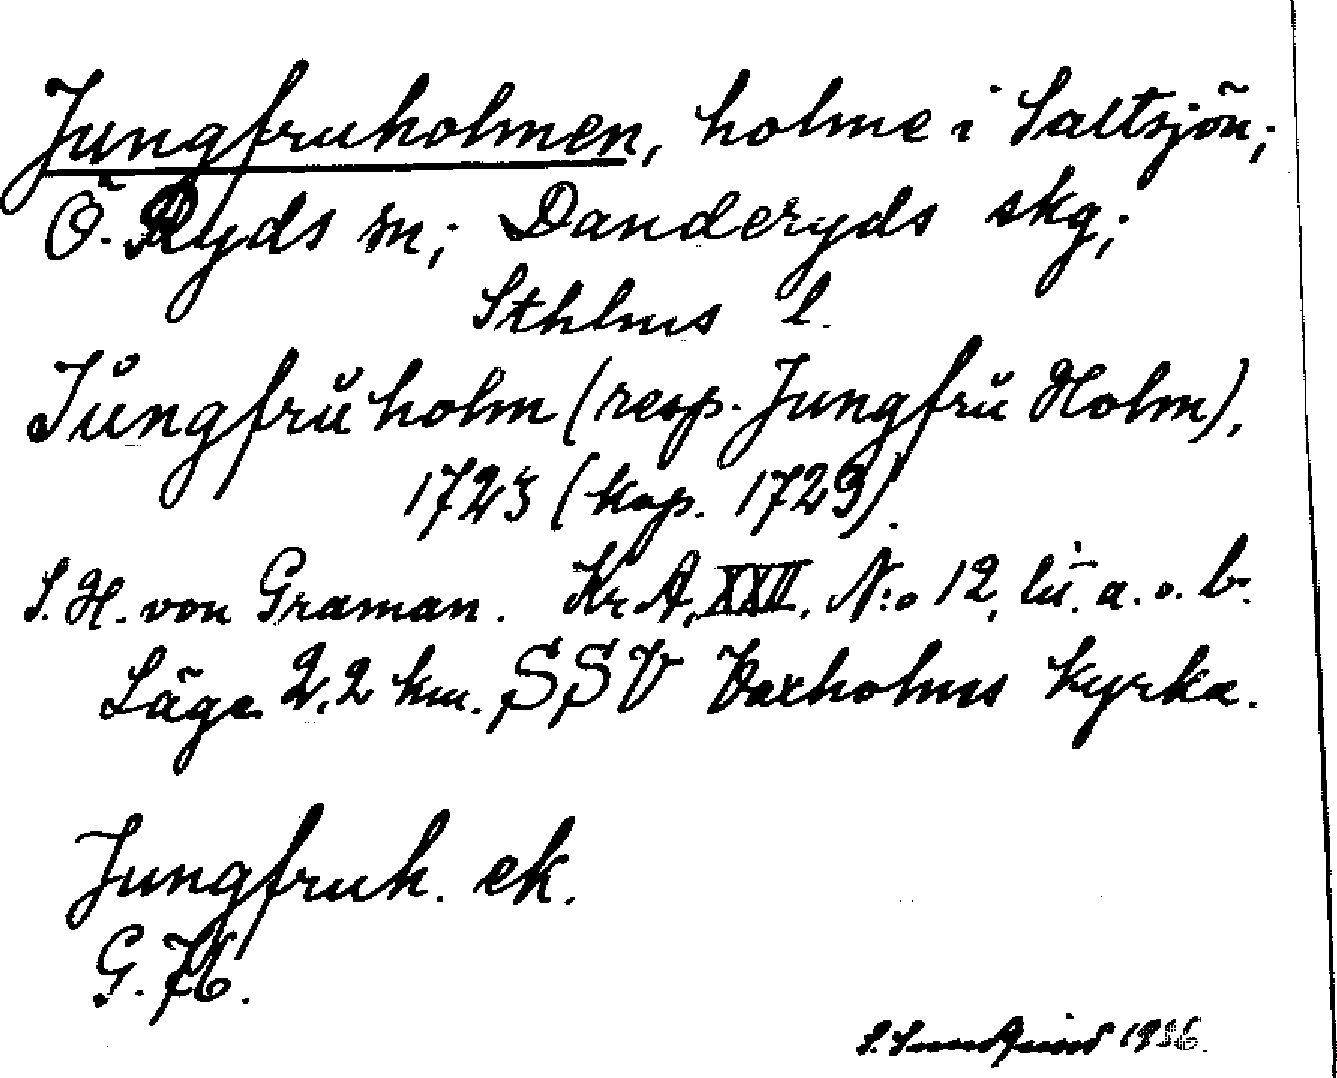 Jungfruholmen, holme i Saltsjön;
Ö. Ryds sn; Danderyds skg;
Sthlms l.
Jungfruholm (resp. Jungfru Holm),
1723 (kop. 1729).
S. H. von Graman. KrA, XXII, N:o 12, lit. a. o. b.
Läge 2,2 km. SSV Vaxholms kyrka.
Jungfruh. ek.
G. 76.
1936.